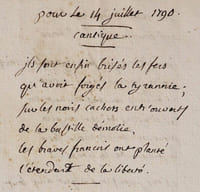 pour le 14 juillet 1790.
cantique.
ils sont enfin brisés les fers
qu'avoit forgés la tyrannie;
sur les noirs cachots entr'ouverts
de la bastille démolie,
les braves francois ont planté
l'étendart de la liberté.